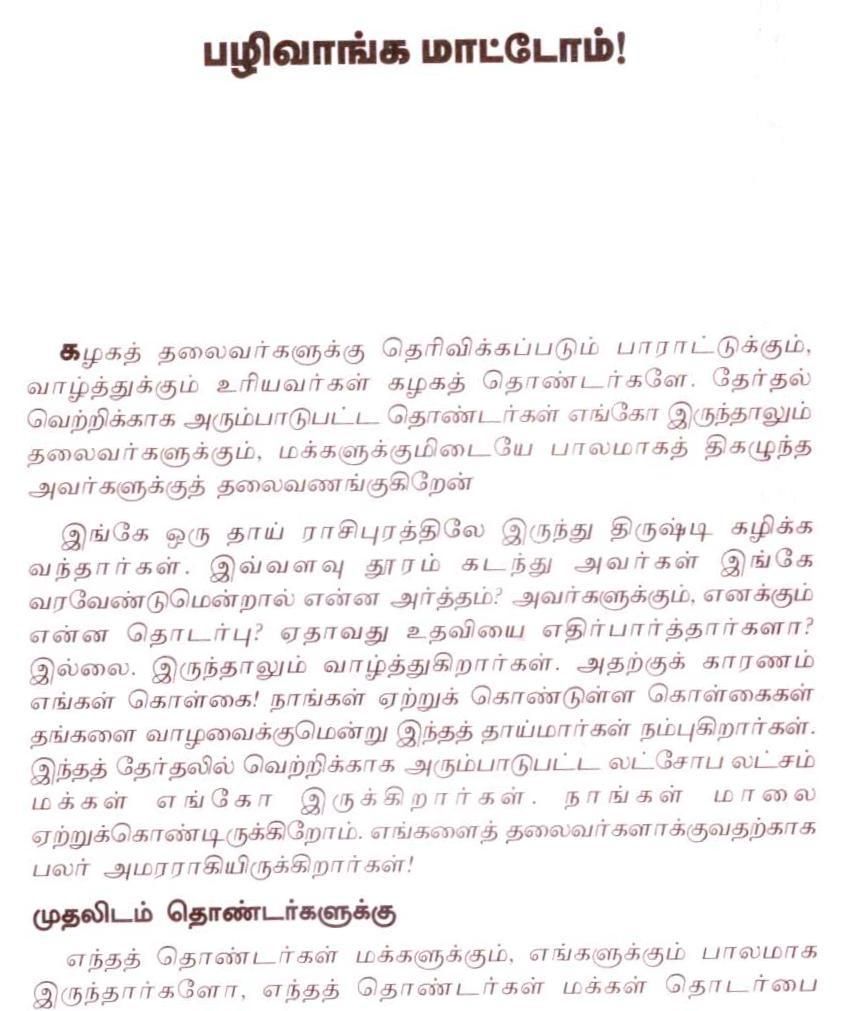 பழிவாங்க மாட்டோம்!
கழகத் தலைவர்களுக்கு தெரிவிக்கப்படும் பாராட்டுக்கும்,
வாழ்த்துக்கும் உரியவர்கள் கழகத் தொண்டர்களே. தேர்தல்
வெற்றிக்காக அரும்பாடுபட்ட தொண்டர்கள் எங்கோ இருந்தாலும்
தலைவர்களுக்கும், மக்களுக்குமிடையே பாலமாகத் திகழுந்த
அவர்களுக்குத் தலைவணங்குகிறேன்
இங்கே ஒரு தாய் ராசிபுரத்திலே இருந்து திருஷ்டி கழிக்க
வந்தார்கள். இவ்வளவு தூரம் கடந்து அவர்கள் இங்கே
வரவேண்டுமென்றால் என்ன அர்த்தம்? அவர்களுக்கும், எனக்கும்
என்ன தொடர்பு? ஏதாவது உதவியை எதிர்பார்த்தார்களா?
இல்லை. இருந்தாலும் வாழ்த்துகிறார்கள். அதற்குக் காரணம்
எங்கள் கொள்கை! நாங்கள் ஏற்றுக் கொண்டுள்ள கொள்கைகள்
தங்களை வாழவைக்குமென்று இந்தத் தாய்மார்கள் நம்புகிறார்கள்.
இந்தத் தேர்தலில் வெற்றிக்காக அரும்பாடுபட்ட லட்சோப லட்சம்
மக்கள் எங்கோ இருக்கிறார்கள். நாங்கள் மாலை
ஏற்றுக்கொண்டிருக்கிறோம். எங்களைத் தலைவர்களாக்குவதற்காக
பலர் அமரராகியிருக்கிறார்கள்!
முதலிடம் தொண்டர்களுக்கு
எந்தத் தொண்டர்கள் மக்களுக்கும், எங்களுக்கும் பாலமாக
இருந்தார்களோ, எந்தத் தொண்டர்கள் மக்கள் தொடர்பை